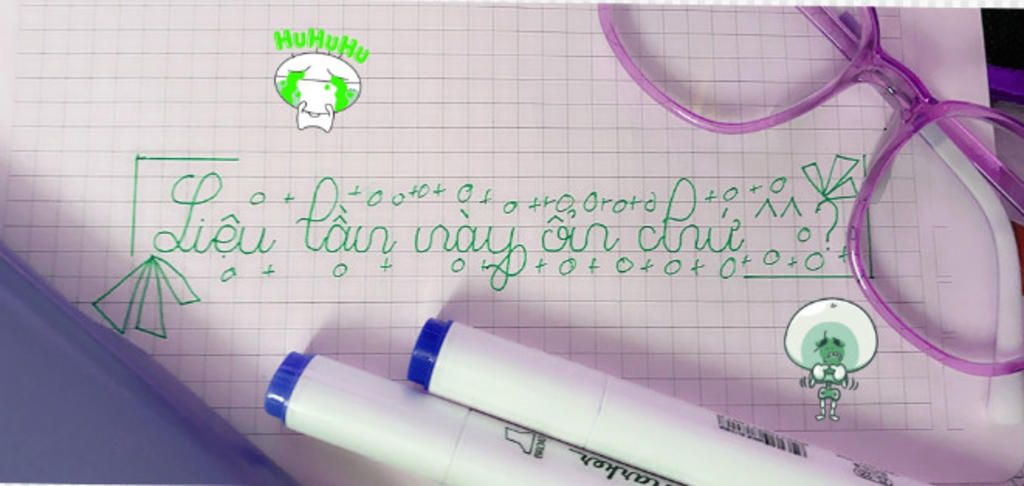 HuHuHu
Liệu lần này ổn chứ ^^?
Marker